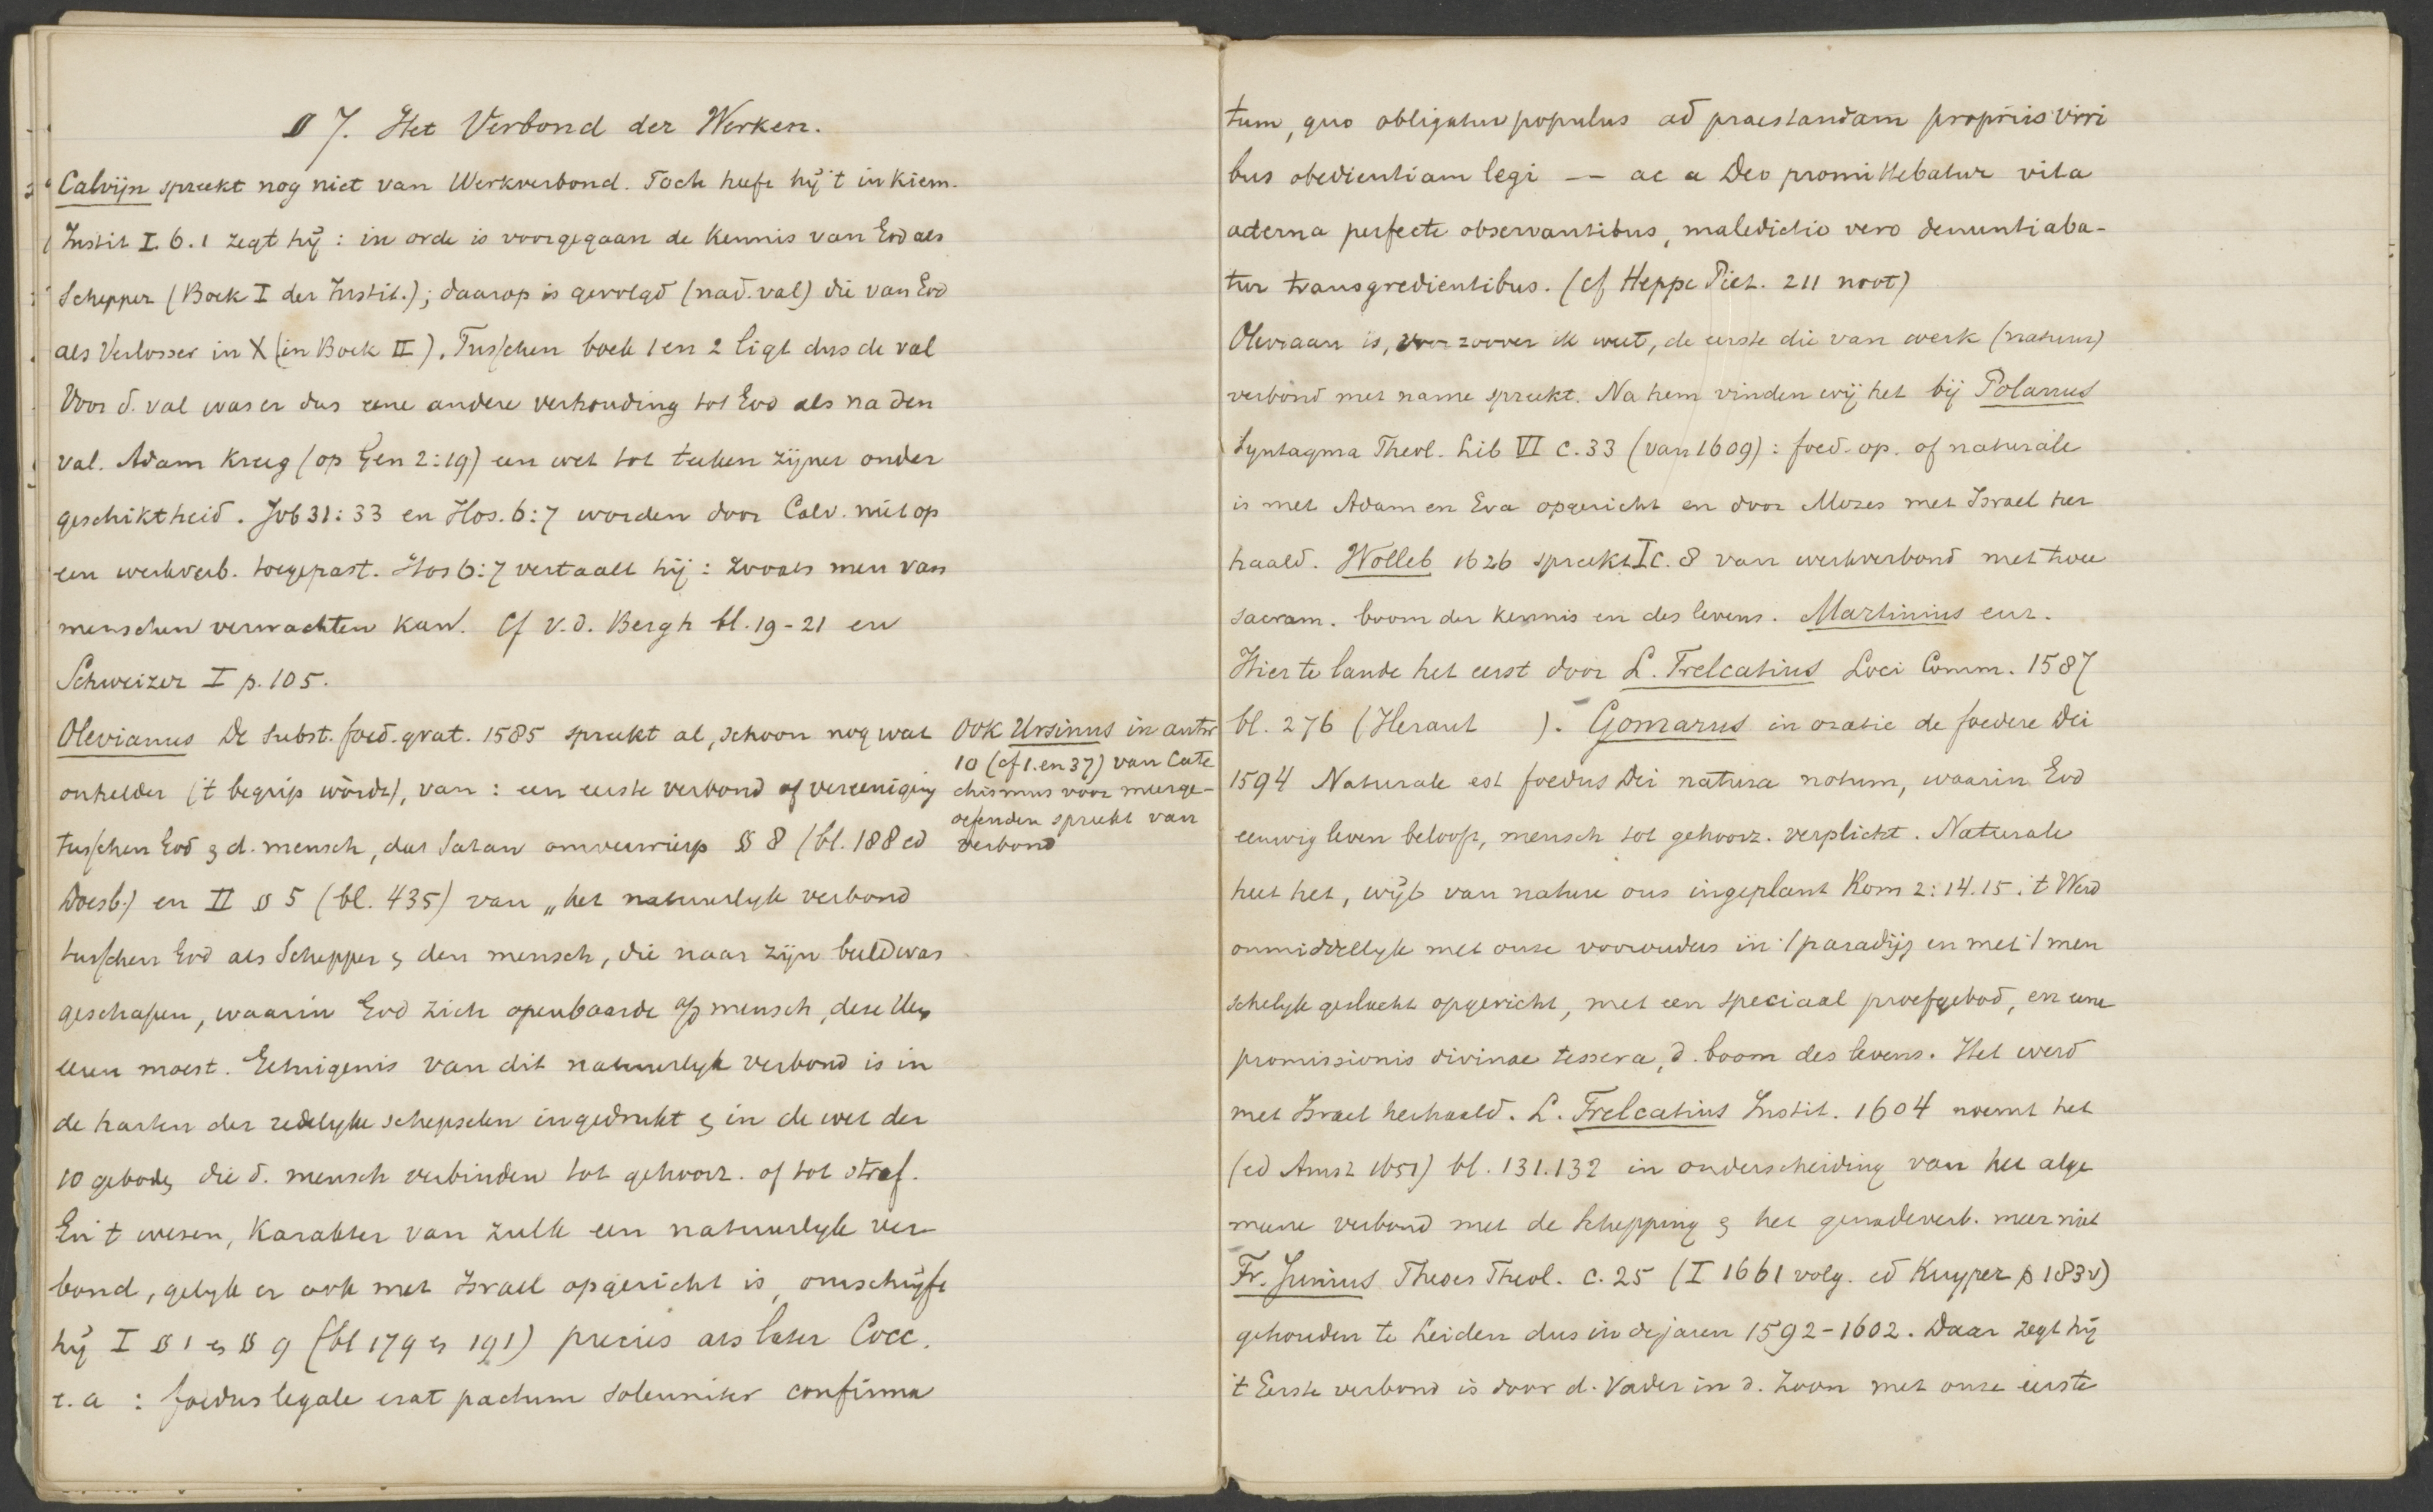 § 7. Het Verbond der Werken.
Calvijn spreekt nog niet van Werkverbond. Toch heeft hij 't in kiem.
Instit I. 6. 1 zegt hij : in orde is voorgegaan de kennis van God als
Schepper (Boek I der Instit.); daarop is gevolgd (na d. val) die van God
als Verlosser in X (in Boek II). Tusschen boek 1 en 2 ligt dus de val
Voor d. val was er dus eene andere verhouding tot God als na den
val. Adam kreeg (op Gen 2:19) een wet tot teeken zijner onder
geschiktheid. Job 31:33 en Hos. 6:7 worden door Calv. niet op
een werkverb. toegepast. Hos 6:7 vertaalt hij : zooals men van
menschen verwachten kan. Cf v.d. Bergh bl. 19-21 en
Schweizer I p. 105.
Olevianus De subst. foed. grat. 1585 spreekt al, schoon nog wat
onhelder ('t begrip wordt), van : een eerste verbond of vereeniging
tusschen God & d. mensch, dat Satan omverwierp § 8 (bl. 188 ed
Doesb.) en II § 5 (bl. 435) van „het natuurlijk verbond
tusschen God als Schepper & den mensch, die naar zijn beeld was
geschapen, waarin God zich openbaarde
eeren moest. Getuigenis van dit natuurlyk verbond is in
de harten der redelyke schepselen ingedrukt & in de wet der
10 geboden die d. mensch verbinden tot gehoorz. of tot straf.
En 't wesen, karakter van zulk een natuurlyk ver-
bond, gelyk er ook met Israel opgericht is, omschrijft
hij I § 1 en § 9 (bl 179 en 191) precies als later Cocc.
e. a : foedus legale erat pactum solenniter confirma
Ook Ursinus in antw
10 (cf 1. en 37) van Cate
chismus voor meerge-
oefenden spreekt van
verbond
tum, quo obligatur populus ad praestandam propriis viri
bus obedientiam legi — ac a Deo promittebatur vita
aeterna perfecte observantibus, maledictio vero denuntiaba-
tur transgredientibus. (cf Heppe Piet. 211 noot)
Oleviaan is, voor zoover ik weet, de eerste die van werk (natuur)
verbond met name spreekt. Na hem vinden wij het bij Polanus
Syntagma Theol. Lib VI c. 33 (van 1609) : foed. op. of naturale
is met Adam en Eva opgericht en door Mozes met Israel her
haald. Wolleb 1626 spreekt I c. 8 van werkverbond met twee
sacram. boom der kennis en des levens. Martinius enz.
Hier te lande het eerst door L. Trelcatius Loci Comm. 1587
bl. 276 (Heraut ). Gomarus in oratie de foedere Dei
1594 Naturale est foedus Dei natura notum, waarin God
eeuwig leven belooft, mensch tot gehoorz. verplicht. Naturale
heet het, wijl van nature ons ingeplant Rom 2:14.15. 't Werd
onmiddellyk met onze voorouders in 't paradijs en met 't men
schelyk geslacht opgericht, met een speciaal proefgebod, en eene
promissionis divinae tessera, d. boom des levens. Het werd
met Israel herhaald. L. Trelcatius Instit. 1604 noemt het
(ed Amst 1651) bl. 131.132 in onderscheiding van het alge
meene verbond met de Schepping & het genadeverb. meer niet
Fr. Junius Theses Theol. c. 25 (I 1661 volg. ed Kuyper p 183 v)
gehouden te Leiden dus in de jaren 1592-1602. Daar zegt hij
't Eerste verbond is door d. Vader in d. Zoon met onze eerste